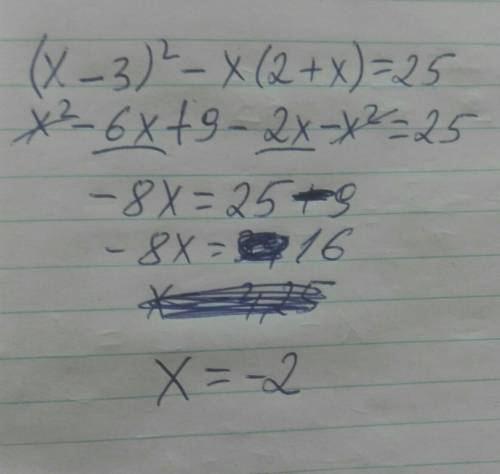 (x - 3)² - x(2 + x) = 25
x² - 6x + 9 - 2x - x² = 25
- 8x = 25 - 9
- 8x = 16
x = -2